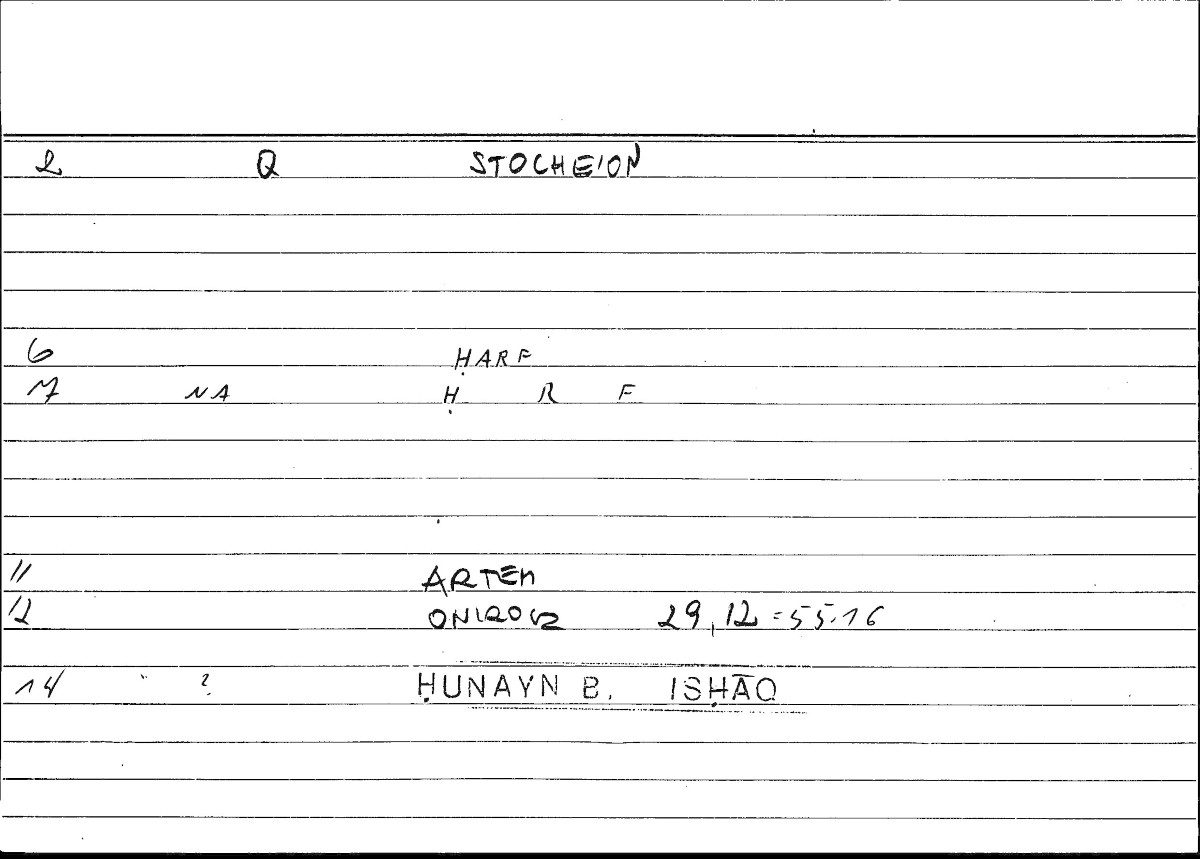 2 Q STOCHEION
6 ḤARF
7 NA Ḥ R F
11 ARTEM
12 ONIROCR 29,12=55.16
14 ? ḤUNAYN B. ISḤĀQ